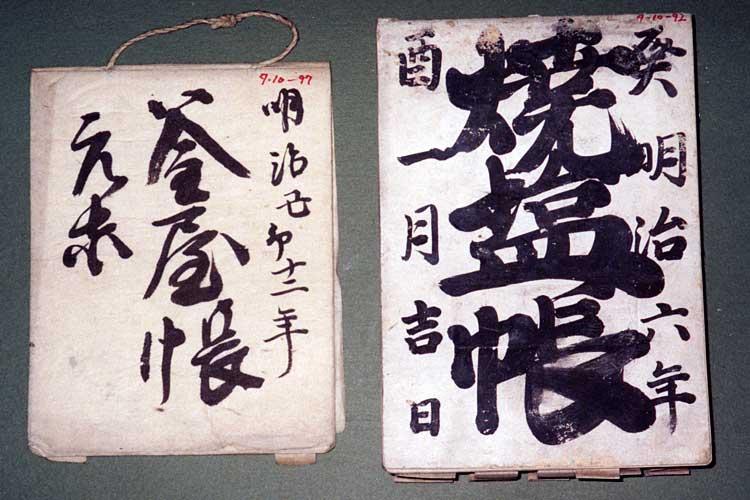 9-10-97
明治己卯十二年
釜屋帳
9-10-92
癸明治六年
焼塩帳
酉一月吉日